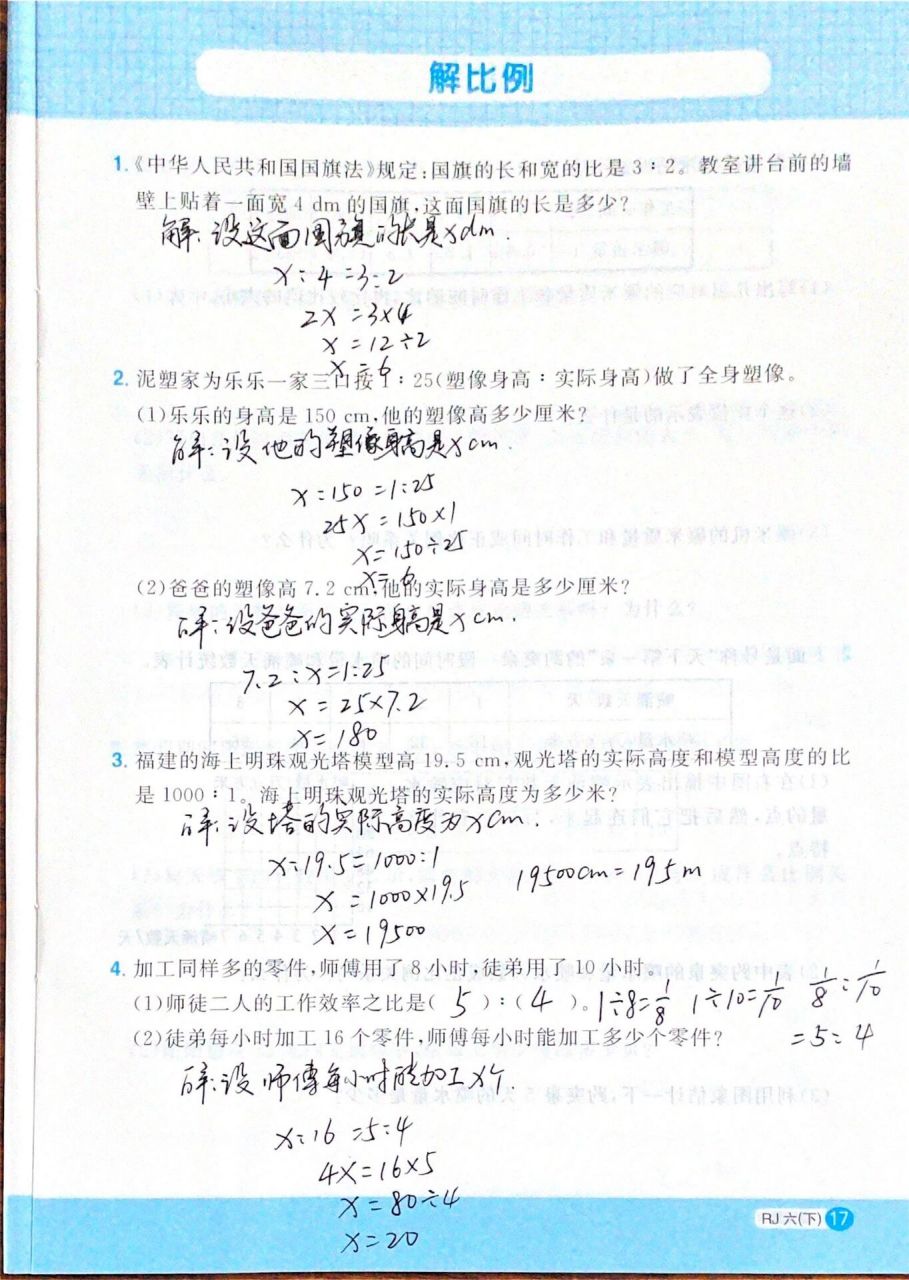 解比例
1.《中华人民共和国国旗法》规定:国旗的长和宽的比是 3∶2。教室讲台前的墙
壁上贴着一面宽 4 dm 的国旗,这面国旗的长是多少?
解:设这面国旗的长是xdm.
x:4=3:2
2x=3×4
x=12÷2
x=6
2. 泥塑家为乐乐一家三口按 1∶25(塑像身高∶实际身高)做了全身塑像。
(1)乐乐的身高是 150 cm,他的塑像高多少厘米?
解:设他的塑像身高是xcm.
x:150=1:25
25x=150×1
x=150÷25
x=6
(2)爸爸的塑像高 7.2 cm,他的实际身高是多少厘米?
解:设爸爸的实际身高是xcm.
7.2:x=1:25
x=25×7.2
x=180
3. 福建的海上明珠观光塔模型高 19.5 cm,观光塔的实际高度和模型高度的比
是 1000∶1。海上明珠观光塔的实际高度为多少米?
解:设塔的实际高度为xcm.
x:19.5=1000:1
x=1000×19.5 19500cm=195m
x=19500
4. 加工同样多的零件,师傅用了 8 小时,徒弟用了 10 小时。
(1)师徒二人的工作效率之比是( 5 )∶( 4 )。1÷8=1/8 1÷10=1/10 1/8:1/10
(2)徒弟每小时加工 16 个零件,师傅每小时能加工多少个零件? =5:4
解:设师傅每小时能加工x个.
x:16=5:4
4x=16×5
x=80÷4
x=20
RJ 六(下) 17